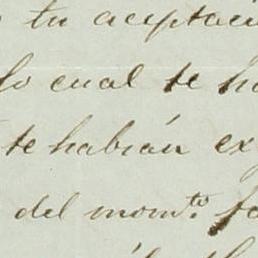 tu aceptaci
lo cual te h
te habrán ex
del momto. fa